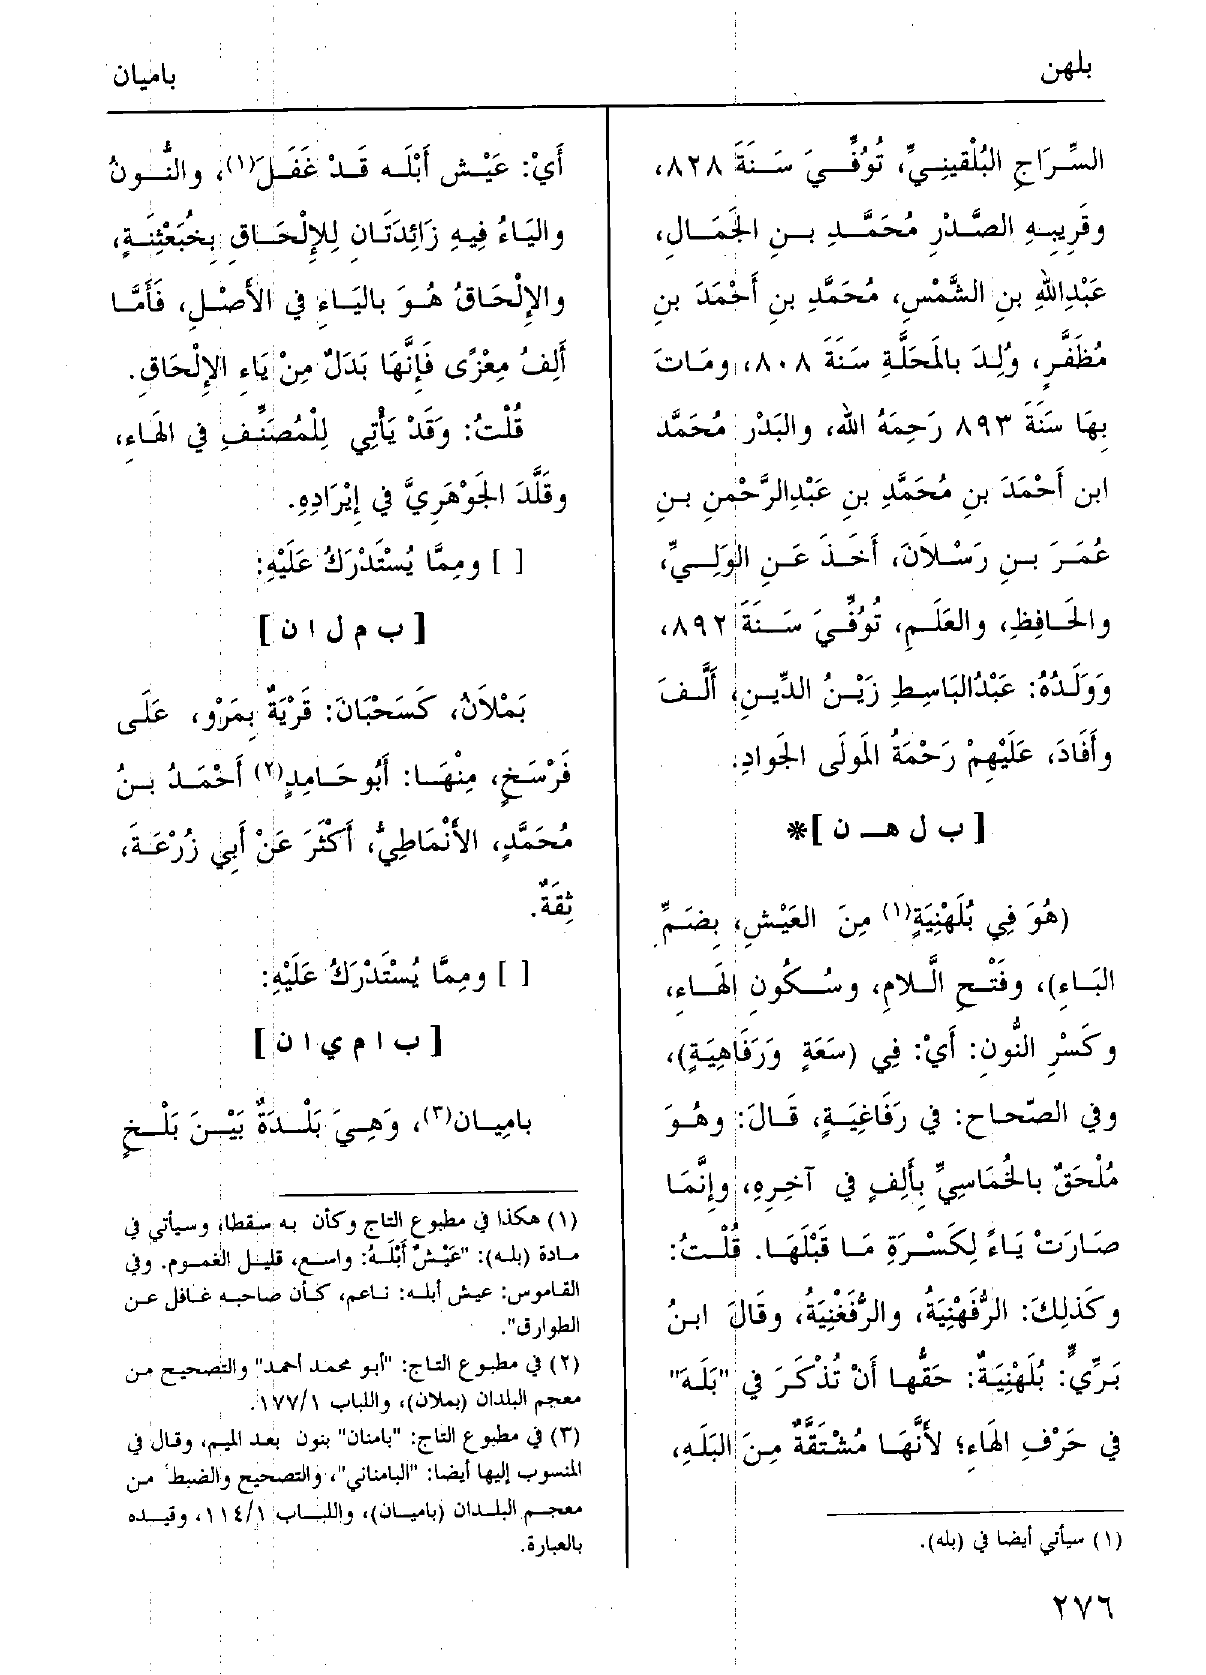 بلهن
باميان
السِّرَاجِ البُلْقينِيِّ، تُوُفِّيَ سَـنَةَ ٨٢٨،
وقَرِيبِهِ الصَّدْرِ مُحَمَّدِ بـنِ الجَمَـالِ،
عَبْدِاللهِ بنِ الشَّمْسِ، مُحَمَّدِ بنِ أَحْمَدَ بنِ
مُظَفَّرٍ، وُلِدَ بالمَحَلَّةِ سَنَةَ ٨٠٨، ومَاتَ
بِهَا سَنَةَ ٨٩٣ رَحِمَهُ الله، والبَدْرِ مُحَمَّد
ابن أَحْمَدَ بنِ مُحَمَّدِ بنِ عَبْدِالرَّحْمنِ بـنِ
عُمَرَ بـنِ رَسْـلَانَ، أَخَـذَ عَـنِ الوَلِـيِّ،
والحَافِظِ، والعَلَمِ، تُوُفِّيَ سَـنَةَ ٨٩٢،
وَوَلَدُهُ: عَبْدُالبَاسِطِ زَيْـنُ الدِّيـنِ، أَلَّـفَ
وأَفَادَ، عَلَيْهِمْ رَحْمَةُ المَولَى الجَوادِ.
[ ب ل هـ ن ]*
(هُوَ فِي بُلَهْنِيَةٍ(١) مِنَ العَيْشِ، بِضَمِّ
البَـاءِ)، وفَتْـحِ الَّـلامِ، وسُـكُونِ الهَـاءِ،
وكَسْرِ النُّونِ: أَيْ: فِي (سَعَةٍ وَرَفَاهِيَةٍ)،
وفي الصّحاح: في رَفَاغِيَةٍ، قَـالَ: وهُـوَ
مُلْحَقٌ بالخُمَاسِيِّ بأَلِفٍ في آخِرِهِ، وإِنَّمَا
صَارَتْ يَاءً لِكَسْرَةِ مَا قَبْلَهَا. قُلْتُ:
وكَذلِكَ: الرُّفَهْنِيَةُ، والرُّفَغْنِيَةُ، وقَالَ ابنُ
بَرِّيٍّ: بُلَهْنِيَةٌ: حَقُّها أَنْ تُذْكَرَ في "بَلَهَ"
في حَرْفِ الهَاءِ؛ لأَنَّهَا مُشْتَقَّةٌ مِنَ البَلَهِ،
(١) سيأتي أيضا في (بله).
أَيْ: عَيْـش أَبْلَـه قَـدْ غَفَـلَ(١)، والنُّـونُ
واليَاءُ فِيهِ زَائِدَتَانِ لِلإِلْحَـاقِ بِخُبَعْثِنَـةٍ،
والإِلْحَاقُ هُـوَ باليَـاءِ في الأَصْـلِ، فَأَمَّـا
أَلِفُ مِعْزًى فَإِنَّهَا بَدَلٌ مِنْ يَاءِ الإِلْحَاقِ.
قُلْتُ: وَقَدْ يَأْتِي لِلْمُصَنِّفِ في الهَاءِ،
وقَلَّدَ الجَوْهَرِيَّ في إيْرَادِهِ.
[ ] ومِمَّا يُسْتَدْرَكُ عَلَيْهِ:
[ ب م ل ا ن ]
بَمْلَانُ، كَسَحْبَانَ: قَرْيَةٌ بِمَرْو، عَلَى
فَرْسَخٍ، مِنْهَـا: أَبُو حَامِدٍ(٢) أَحْمَدُ بـنُ
مُحَمَّدٍ، الأَنْمَاطِيُّ، أَكْثَرَ عَنْ أَبِي زُرْعَةَ،
ثِقَةٌ.
[ ] ومِمَّا يُسْتَدْرَكُ عَلَيْهِ:
[ ب ا م ي ا ن ]
بامِيـان(٣)، وَهِيَ بَلْـدَةٌ بَيْـنَ بَلْـخٍ
(١) هكذا في مطبوع التاج وكأن به سقطا، وسيأتي في
مادة (بله): "عَيْشٌ أَبْلَهُ: واسع، قليل الغموم. وفي
القاموس: عيش أبله: ناعم، كأن صاحبه غافل عن
الطوارق".
(٢) في مطبوع التاج: "أبو محمد أحمد" والتصحيح من
معجم البلدان (بملان)، واللباب ١٧٧/١.
(٣) في مطبوع التاج: "بامنان" بنون بعد الميم، وقال في
المنسوب إليها أيضا: "البامناني"، والتصحيح والضبط من
معجم البلدان (باميان)، واللباب ١١٤/١، وقيده
بالعبارة.
٢٧٦